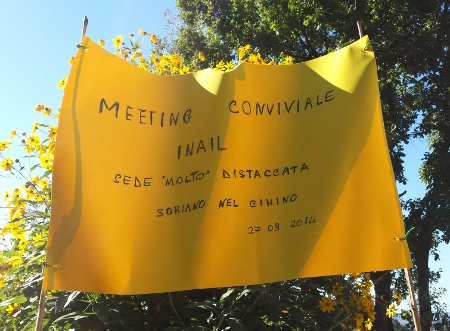 MEETING CONVIVIALE
INAIL
SEDE "MOLTO" DISTACCATA
SORIANO NEL CIMINO
27 09 2014